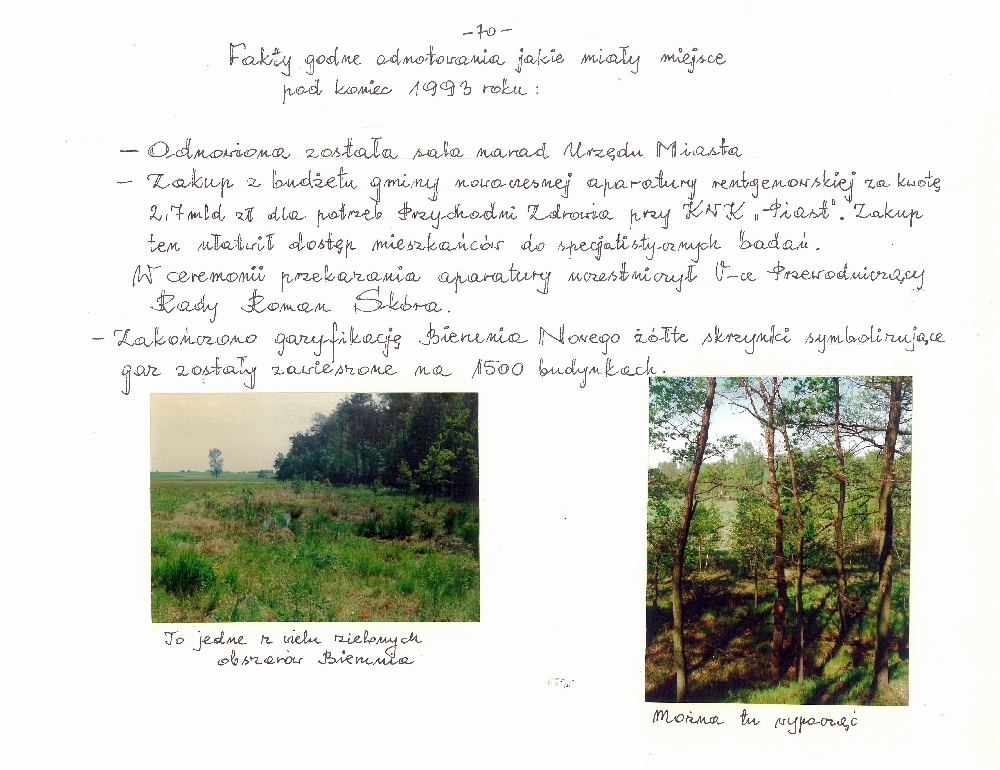 -70-
Fakty godne odnotowania jakie miały miejsce
pod koniec 1993 roku:
- Odnowiona została sala narad Urzędu Miasta
- Zakup z budżetu gminy nowoczesnej aparatury rentgenowskiej za kwotę
2,7 mld zł dla potrzeb Przychodni Zdrowia przy KWK „Piast". Zakup
ten ułatwił dostęp mieszkańców do specjalistycznych badań.
W ceremonii przekazania aparatury uczestniczył V-ce Przewodniczący
Rady Roman Skóra.
- Zakończono gazyfikację Bierunia Nowego żółte skrzynki symbolizujące
gaz zostały zawieszone na 1500 budynkach.
To jedne z wielu zielonych
obszarów Bierunia
Można tu wypocząć